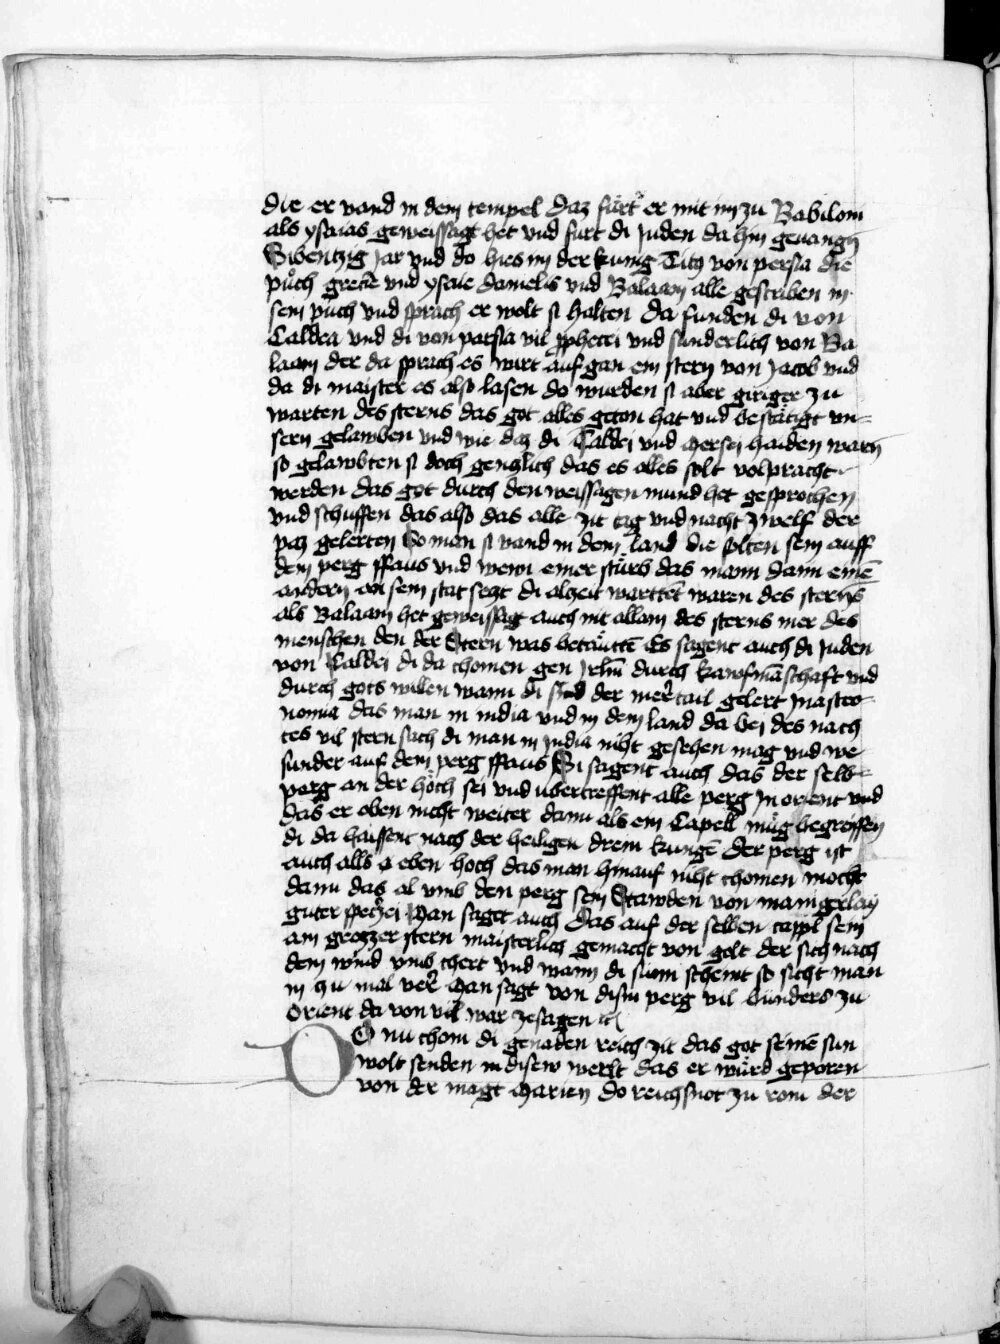 die er vand in dem tempel daz fürt er mit im zu Babiloni
als ysaias geweissagt het vnd furt di Juden da hin geuangen
Sibentzig Jar vnd do hies im der kunig von persia die
puͦch vnd ysaie danielis vnd Balaam alle gescriben in
sein puch vnd sprach er wolt si halten da funden di von
Caldea vnd di von parsia vil pphecei vnd sunderlich von Ba
laam der da sprach es wirt auf gan ein stern von Jacob vnd
da di maister es also lasen do wurden si aber giriger zu
warten des sterns das got alles geton hat vnd bestätigt vn=
sern gelawben vnd wie daz di Caldei vnd persei haiden warn
so gelawbten si doch gentzlich das es alles solt volpracht
werden das got durch den weissagen mund het gesprochen
vnd schuffen das also das alle zit tag vnd nacht zwelf der
paz gelerten So man si vand in dem land die solten sein auff
dem perg vnd wenn einer stürb das mann dann einē
andern an sein stat sezt di alzeit wartten waren des sterns
als Balaam het geweissagt auch nit allain des sterns mer des
menschen den der Stern was betäuttē Es sagent auch di Juden
von Caldei di da chomen gen Jrlm durch kawfmāschaft vnd
durch gots willen wann di sind der mertail gelert in astro
nomia das man in india vnd in dem land da bei des nach
tes vil stern sach di man in Jndia niht gesehen mag vnd we
sunder auf dem perg Si sagent auch das der selb
perg an der höch sei vnd vbertreffent alle perg in orient vnd
das er oben nicht weiter dann als ein Capell mug begreiffen
di da haissent nach der heiligen drein kungē Der perg ist
auch alls eben hoch das man hinauf niht chomen mocht
dann das al vmb den perg sein Stawden von manigerlay
guter spetzei Man saget auch das auf der selben cappl sein
ain grozzer stern maisterlich gemacht von golt der sich nach
dem wind vmb chert vnd wann di sunn scheint so sicht man
in gu mal verr Man sagt von disem perg vil bunders zu
orient da von vil war zesagen etc
DO nu chom di genaden reich zit das got seinē sun
wolt senden in disew werlt das er würd geporen
von der magt Marien do reichsnot zu rom der